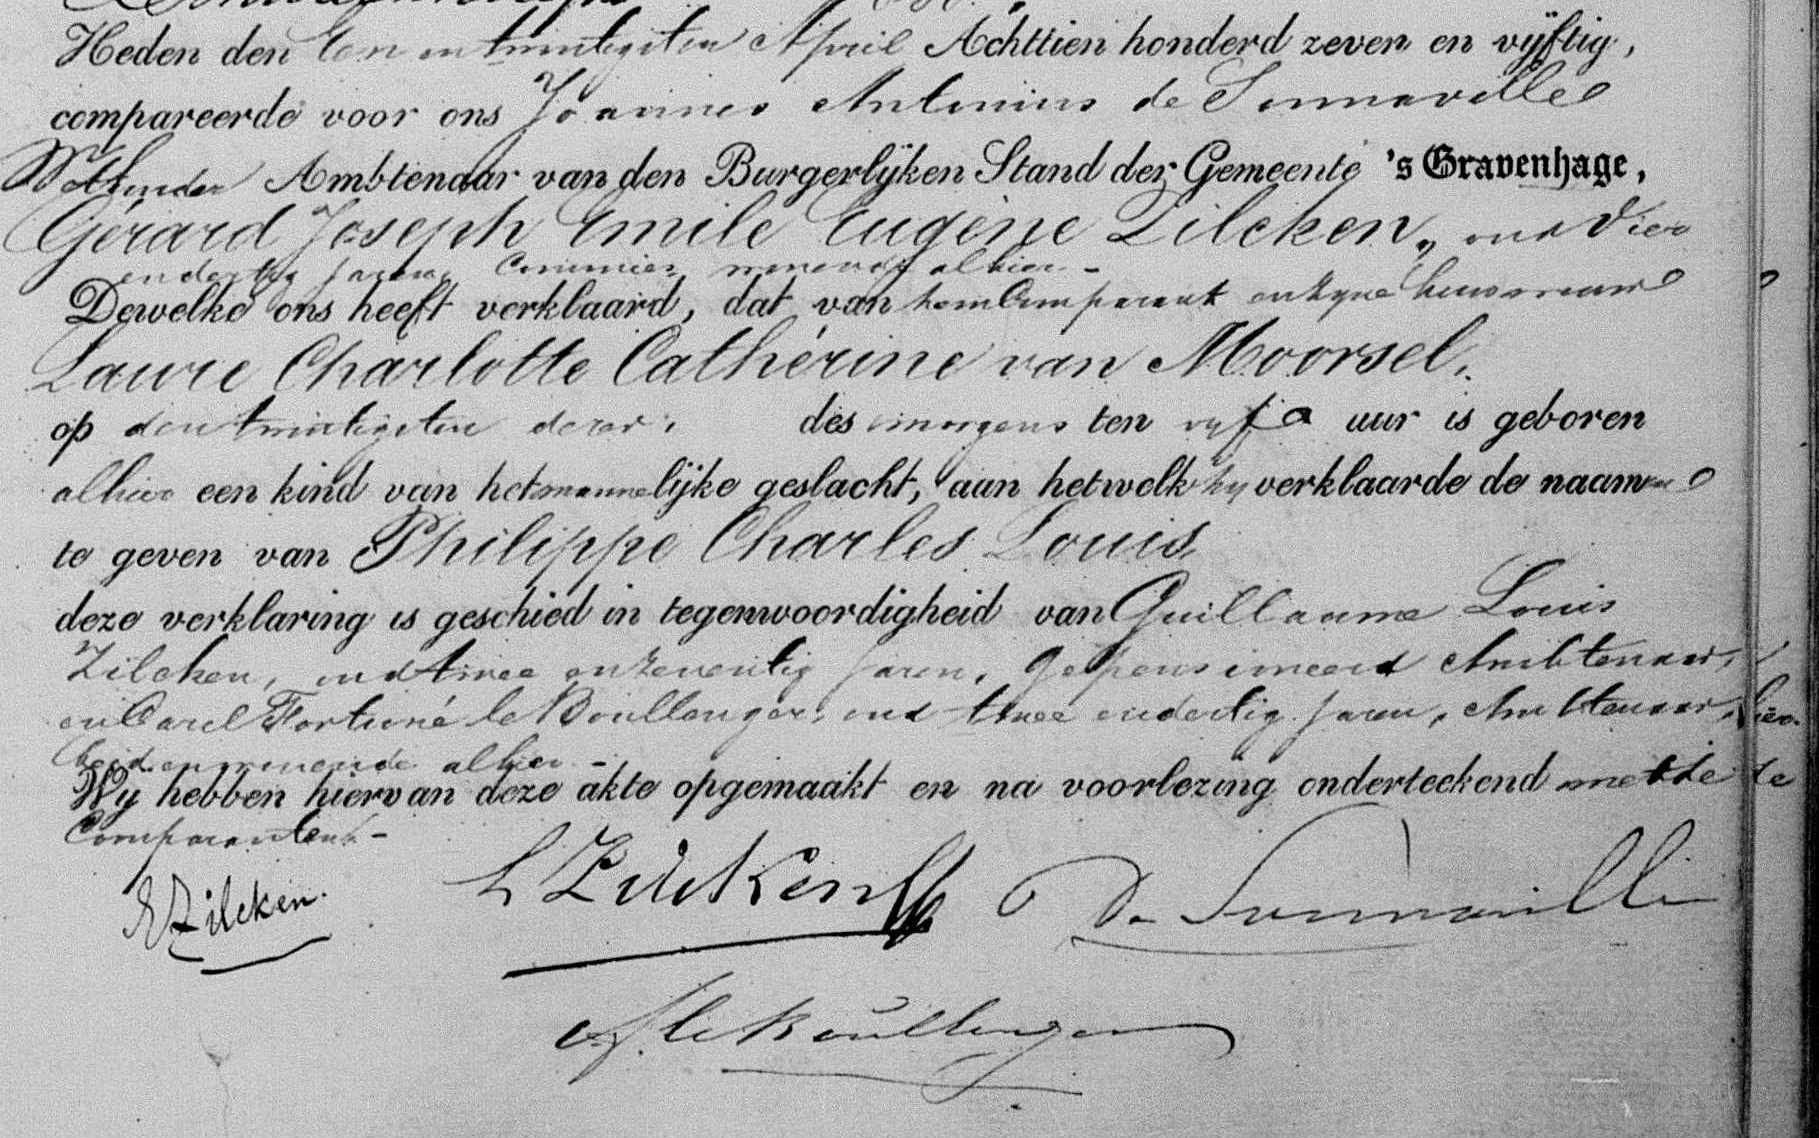 Heden den Een en twintigsten April Achttien honderd zeven en vijftig,
compareerde voor ons Joannes Antonius de Sonnaville
Wethouder Ambtenaar van den Burgerlijken Stand der Gemeente 's Gravenhage,
Gérard Joseph Emile Eugène Zilcken, oud Vier
en dertig jaren, Commies, wonende alhier -
Dewelke ons heeft verklaard, dat van hem Comparant en zyne huisvrouw
Laure Charlotte Cathérine van Moorsel,
op den twintigsten dezer, des smorgens ten vyf uur is geboren
alhier een kind van het mannelijke geslacht, aan hetwelk hy verklaarde de naamen
te geven van Philippe Charles Louis
deze verklaring is geschied in tegenwoordigheid van Guillaume Louis
Zilcken, oud twee en zeventig jaren, Gepensioneerd Ambtenaar,
en Carel Fortuné le Boullenger, oud twee en dertig jaren, Ambtenaar,
beiden wonende alhier -
Wy hebben hiervan deze akte opgemaakt en na voorlezing onderteekend met de
Comparanten -
E Zilcken.
L Zilcken
De Sonnaville
C. F. le Boullenger